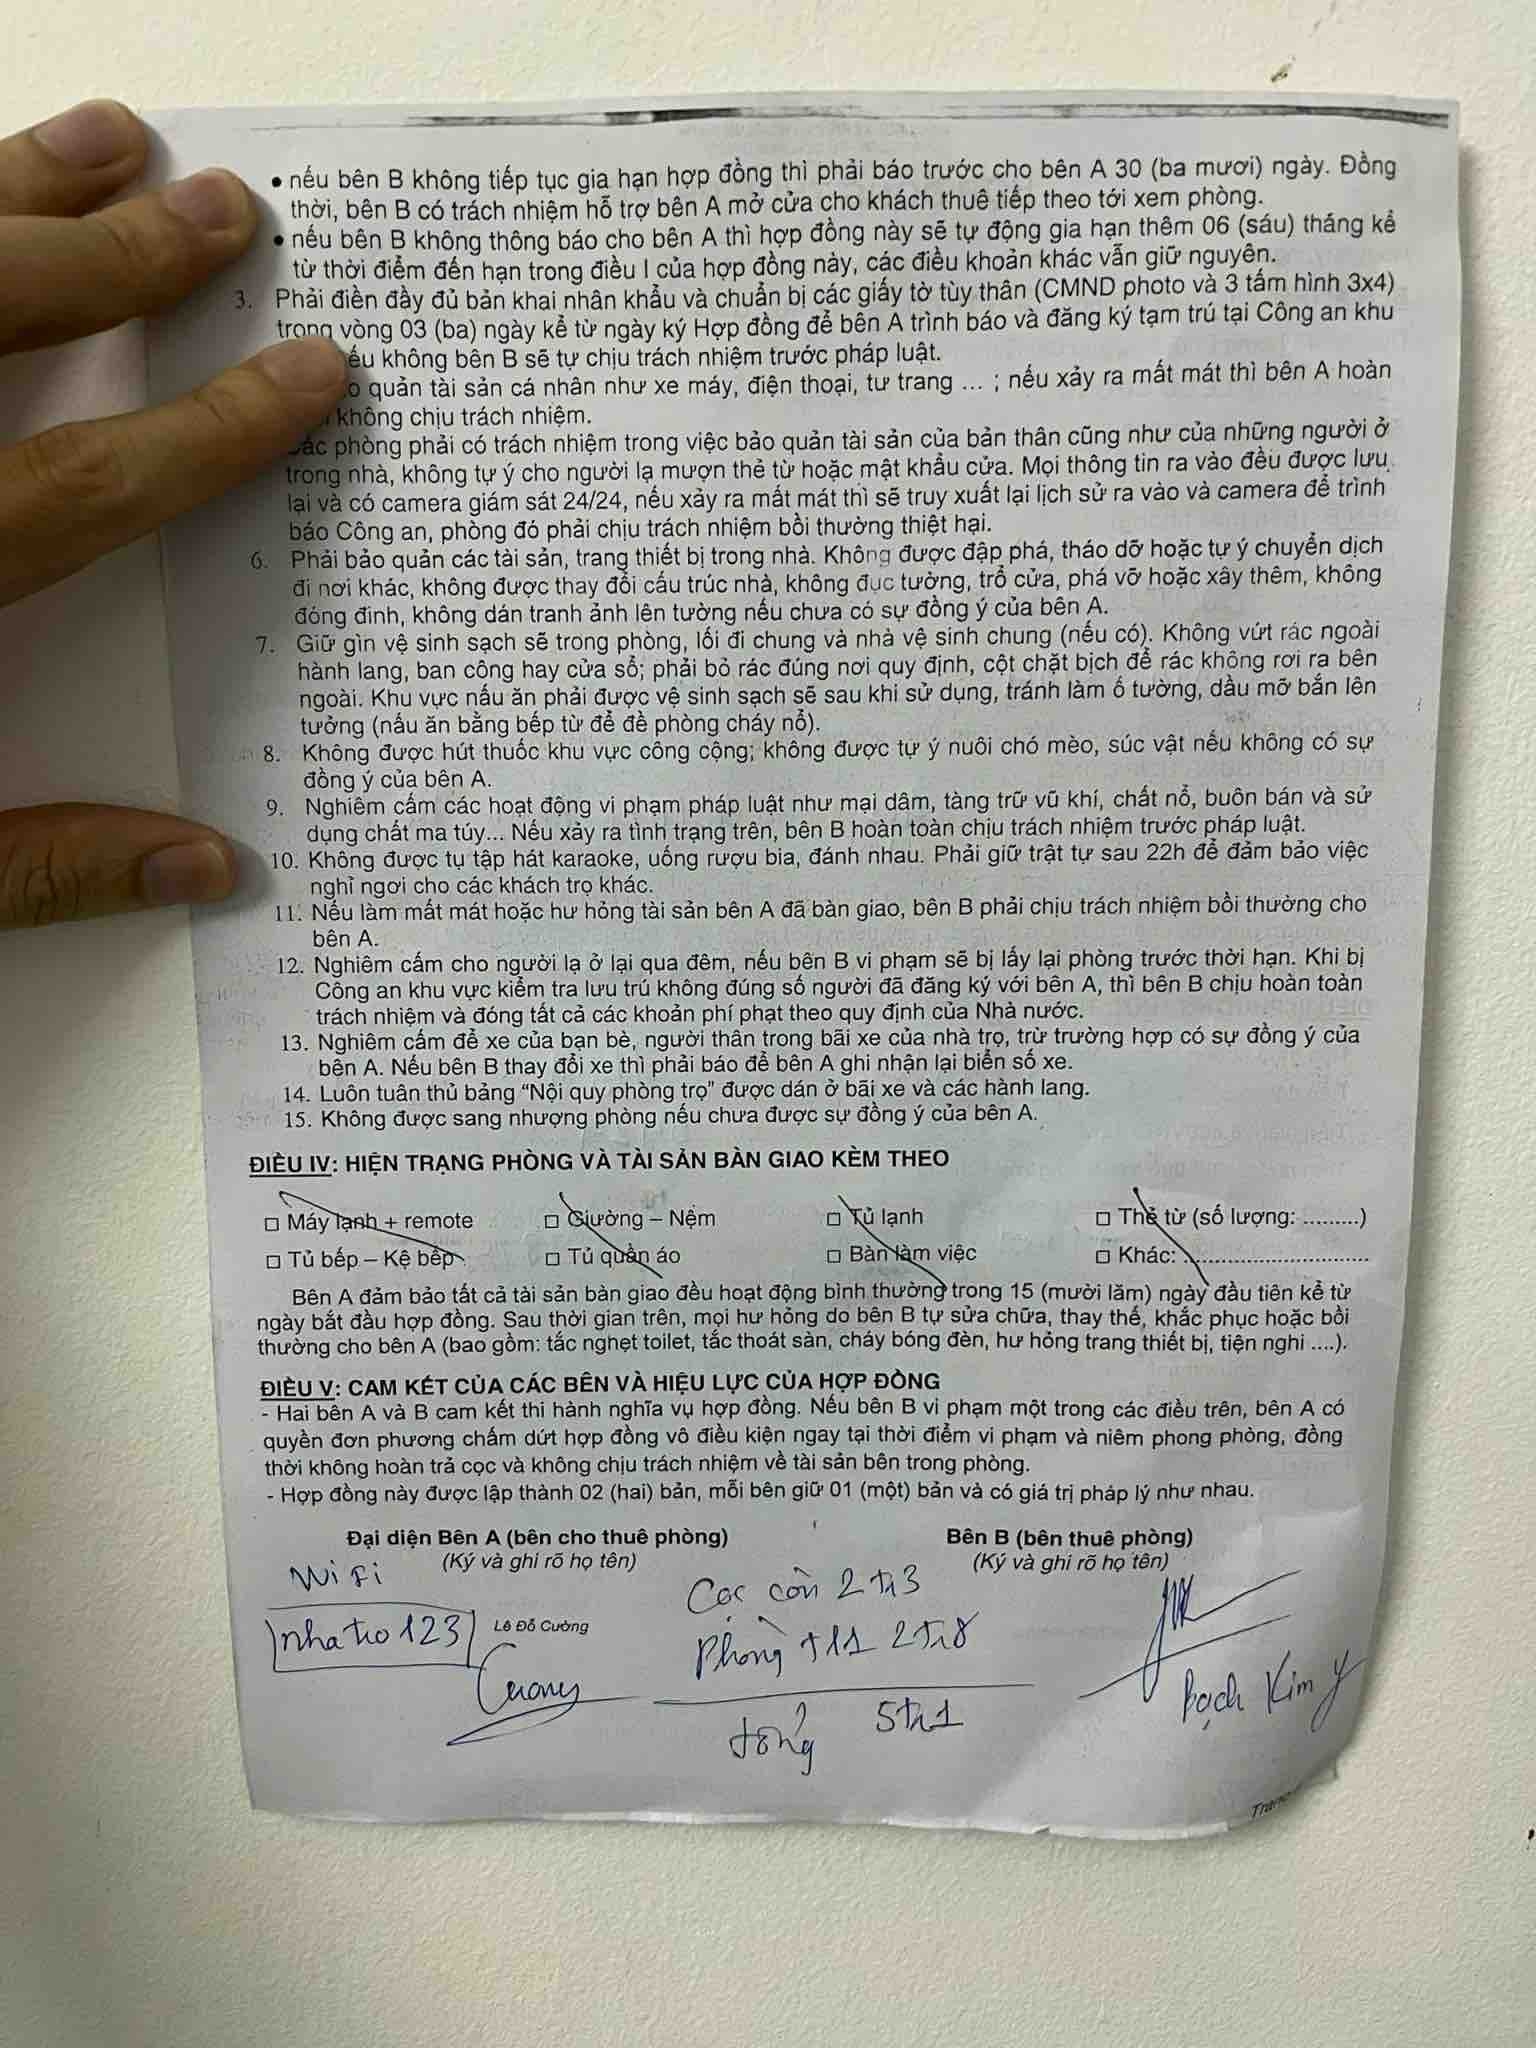 • nếu bên B không tiếp tục gia hạn hợp đồng thì phải báo trước cho bên A 30 (ba mươi) ngày. Đồng
thời, bên B có trách nhiệm hỗ trợ bên A mở cửa cho khách thuê tiếp theo tới xem phòng.
• nếu bên B không thông báo cho bên A thì hợp đồng này sẽ tự động gia hạn thêm 06 (sáu) tháng kể
từ thời điểm đến hạn trong điều I của hợp đồng này, các điều khoản khác vẫn giữ nguyên.
3. Phải điền đầy đủ bản khai nhân khẩu và chuẩn bị các giấy tờ tùy thân (CMND photo và 3 tấm hình 3x4)
trong vòng 03 (ba) ngày kể từ ngày ký Hợp đồng để bên A trình báo và đăng ký tạm trú tại Công an khu
không bên B sẽ tự chịu trách nhiệm trước pháp luật.
quản tài sản cá nhân như xe máy, điện thoại, tư trang ... ; nếu xảy ra mất mát thì bên A hoàn
không chịu trách nhiệm.
phòng phải có trách nhiệm trong việc bảo quản tài sản của bản thân cũng như của những người ở
trong nhà, không tự ý cho người lạ mượn thẻ từ hoặc mật khẩu cửa. Mọi thông tin ra vào đều được lưu
lại và có camera giám sát 24/24, nếu xảy ra mất mát thì sẽ truy xuất lại lịch sử ra vào và camera để trình
báo Công an, phòng đó phải chịu trách nhiệm bồi thường thiệt hại.
6. Phải bảo quản các tài sản, trang thiết bị trong nhà. Không được đập phá, tháo dỡ hoặc tự ý chuyển dịch
đi nơi khác, không được thay đổi cấu trúc nhà, không đục tường, trổ cửa, phá vỡ hoặc xây thêm, không
đóng đinh, không dán tranh ảnh lên tường nếu chưa có sự đồng ý của bên A.
7. Giữ gìn vệ sinh sạch sẽ trong phòng, lối đi chung và nhà vệ sinh chung (nếu có). Không vứt rác ngoài
hành lang, ban công hay cửa sổ; phải bỏ rác đúng nơi quy định, cột chặt bịch để rác không rơi ra bên
ngoài. Khu vực nấu ăn phải được vệ sinh sạch sẽ sau khi sử dụng, tránh làm ố tường, dầu mỡ bắn lên
tưởng (nấu ăn bằng bếp từ để đề phòng cháy nổ).
8. Không được hút thuốc khu vực công cộng; không được tự ý nuôi chó mèo, súc vật nếu không có sự
đồng ý của bên A.
9. Nghiêm cấm các hoạt động vi phạm pháp luật như mại dâm, tàng trữ vũ khí, chất nổ, buôn bán và sử
dụng chất ma túy... Nếu xảy ra tình trạng trên, bên B hoàn toàn chịu trách nhiệm trước pháp luật.
10. Không được tụ tập hát karaoke, uống rượu bia, đánh nhau. Phải giữ trật tự sau 22h để đảm bảo việc
nghỉ ngơi cho các khách trọ khác.
11. Nếu làm mất mát hoặc hư hỏng tài sản bên A đã bàn giao, bên B phải chịu trách nhiệm bồi thường cho
bên A.
12. Nghiêm cấm cho người lạ ở lại qua đêm, nếu bên B vi phạm sẽ bị lấy lại phòng trước thời hạn. Khi bị
Công an khu vực kiểm tra lưu trú không đúng số người đã đăng ký với bên A, thì bên B chịu hoàn toàn
trách nhiệm và đóng tất cả các khoản phí phạt theo quy định của Nhà nước.
13. Nghiêm cấm để xe của bạn bè, người thân trong bãi xe của nhà trọ, trừ trường hợp có sự đồng ý của
bên A. Nếu bên B thay đổi xe thì phải báo để bên A ghi nhận lại biển số xe.
14. Luôn tuân thủ bảng “Nội quy phòng trọ” được dán ở bãi xe và các hành lang.
15. Không được sang nhượng phòng nếu chưa được sự đồng ý của bên A.
ĐIỀU IV: HIỆN TRẠNG PHÒNG VÀ TÀI SẢN BÀN GIAO KÈM THEO
□ Máy lạnh + remote □ Giường – Nệm □ Tủ lạnh □ Thẻ từ (số lượng: .........)
□ Tủ bếp – Kệ bếp □ Tủ quần áo □ Bàn làm việc □ Khác: ..............................
Bên A đảm bảo tất cả tài sản bàn giao đều hoạt động bình thường trong 15 (mười lăm) ngày đầu tiên kể từ
ngày bắt đầu hợp đồng. Sau thời gian trên, mọi hư hỏng do bên B tự sửa chữa, thay thế, khắc phục hoặc bồi
thường cho bên A (bao gồm: tắc nghẹt toilet, tắc thoát sàn, cháy bóng đèn, hư hỏng trang thiết bị, tiện nghi ....).
ĐIỀU V: CAM KẾT CỦA CÁC BÊN VÀ HIỆU LỰC CỦA HỢP ĐỒNG
- Hai bên A và B cam kết thi hành nghĩa vụ hợp đồng. Nếu bên B vi phạm một trong các điều trên, bên A có
quyền đơn phương chấm dứt hợp đồng vô điều kiện ngay tại thời điểm vi phạm và niêm phong phòng, đồng
thời không hoàn trả cọc và không chịu trách nhiệm về tài sản bên trong phòng.
- Hợp đồng này được lập thành 02 (hai) bản, mỗi bên giữ 01 (một) bản và có giá trị pháp lý như nhau.
Đại diện Bên A (bên cho thuê phòng) Bên B (bên thuê phòng)
(Ký và ghi rõ họ tên) (Ký và ghi rõ họ tên)
Wifi
nhatro123
Lê Đỗ Cường
Cường
Cọc còn 2tr3
Phòng t11 2tr8
tổng 5tr1
Bạch Kim Y
Trang